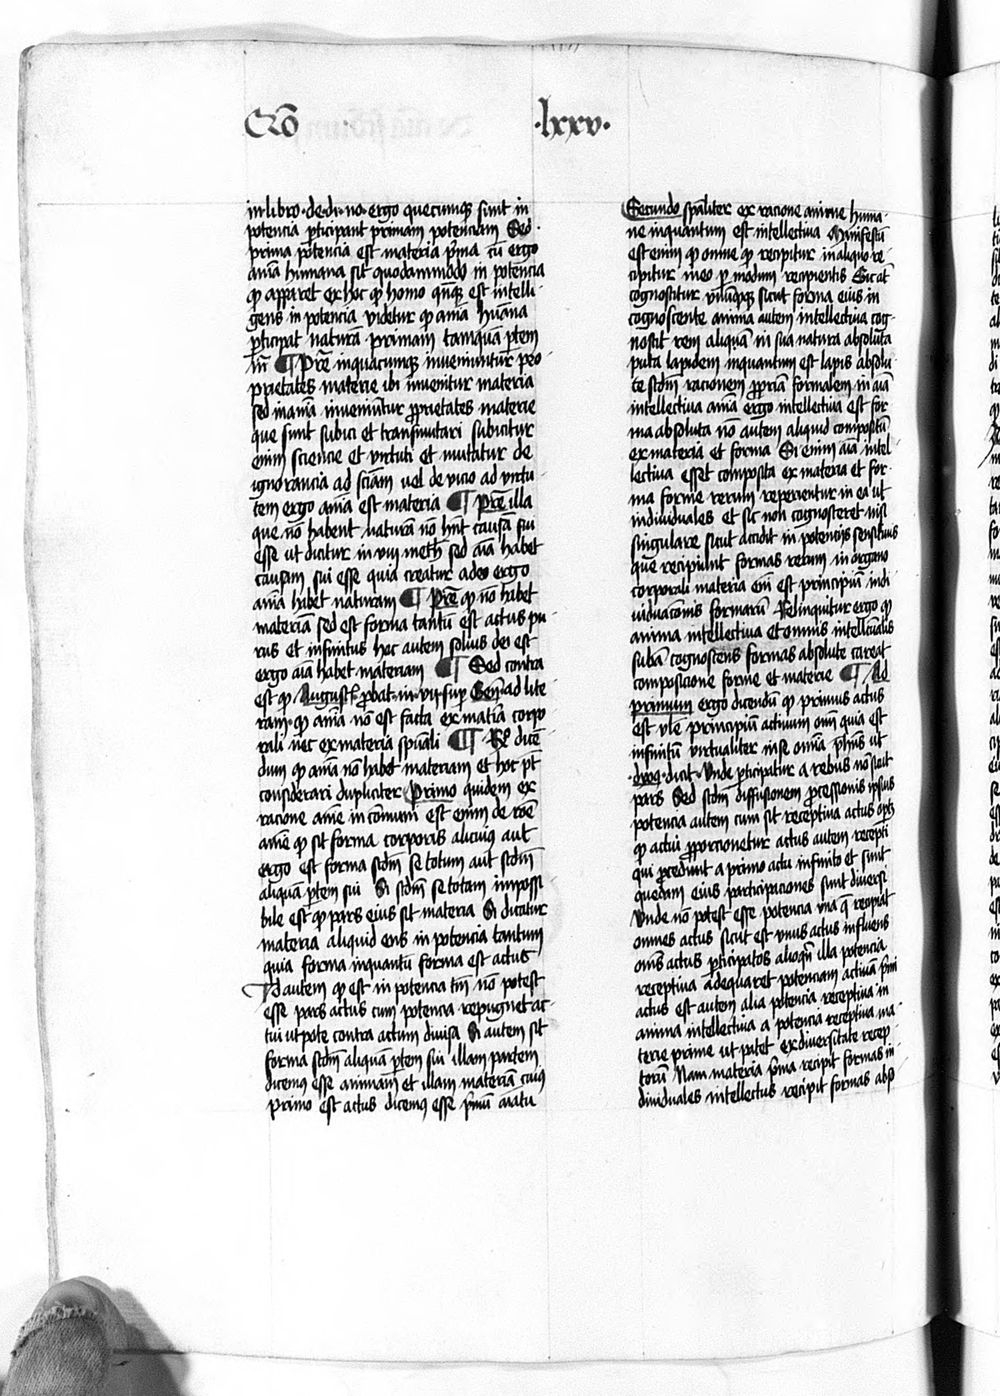 Q̄o
·lxxv·
in libro · de · di · no · ergo quecumqꝫ sunt in
potencia ꝑticipant primam potenciam Sed ·
prima potencia est materia p̄ma cū ergo
aīa humana sit quodammodo in potencia
qꝫ apparet ex hoc qꝫ homo qn̄qꝫ est intelli-
gens in potencia videtur qꝫ aīa hūana
ꝑticipat naturā primam tamquā ꝑtem
sui ¶ Pret̄ in quacumqꝫ inveniuntur pro
prietates materie ibi invenitur materia
sed in aīa inveniūtur ꝓprietates materie
que sunt subici et transmutari subicitur
enim sciencie et virtuti et mutatur de
ignorancia ad sciām vel de vicio ad virtu
tem ergo aīa est materia ¶ Pret̄ illa
que nō habent materiā nō hn̄t causā sui
esse ut dicitur in viij meth̄ sed aīa habet
causam sui esse quia creatur a deo ergo
aīa habet materiam ¶ Pret̄ qꝫ nō habet
materiā sed est forma tantū est actus pu
rus et infinitus hoc autem solius dei est
ergo aīa habet materiam ¶ Sed contra
est qꝫ August̄ ꝓbat in vij suꝑ Gen̄ ad lite
ram qꝫ aīa nō est facta ex mat̄ia corpo
rali nec ex materia sp̄uali ¶ Rō dicē
dum qꝫ aīa nō habet materiam et hoc pt̄
considerari dupliciter Primo quidem ex
racione aīe in cōmuni est enim de rōe
aīe qꝫ sit forma corporis alicuius aut
ergo est forma scdm̄ se totum aut scdm̄
aliquā ꝑtem sui Si scdm̄ se totam impossi
bile est qꝫ pars eius sit materia Si dicatur
materia aliquid ens in potencia tantum
quia forma inquantū forma est actus
Id autem qꝫ est in potencia tm̄ nō potest
esse pars actus cum potencia repugnet ac-
tui utpote contra actum divisa Si autem sit
forma scdm̄ aliquā ꝑtem sui illam partem
dicemꝰ esse animam et illam materiā cuiꝰ
primo est actus dicemꝰ esse p̄mū aīatū
Secundo spāliter ex racione anime huma-
ne inquantum est intellectiva Manifestū
est enim qꝫ omne qꝫ recipitur in aliquo re
cipitur in eo ꝑ modum recipientis Sic at̄
cognoscitur unūqꝫqꝫ sicut forma eius in
cognoscente anima autem intellectiva cog-
noscit rem aliquā in sua natura absoluta
puta lapidem inquantum est lapis absolu-
te scdm̄ racionem ꝓpriā formalem in aīa
intellectiva aīa ergo intellectiva est for
ma absoluta nō autem aliquid compositū
ex materia et forma Si enim aīa intel
lectiva esset composita ex materia et for-
ma forme rerum reperientur in ea ut
individuales et sic non cognosceret nisi
singulare sicut accidit in potencijs sensitivis
que recipiunt formas rerum in organo
corporali materia eīm est principiū indi
viduacōnis formarū Relinquitur ergo qꝫ
anima intellectiva et omnis intellcūalis
subā cognoscens formas absolute careat
composicione forme et materie ¶ Ad
primum ergo dicendū qꝫ primus actus
est vl̄e principiū activum omī quia est
infinitū virtualiter in se omīa p̄hn̄s ut
· dyoꝫ · dicit Unde ꝑticipatur a rebus nō sicut
pars Sed scdm̄ diffusionem ꝓcessionis ipsius
potencia autem cum sit receptiva actus oꝑtꝫ
qꝫ actui ꝓporcionetur actus autem recepti
qui ꝓcedunt a primo actu infinito et sunt
quedam eius participaciones sunt diversi
Unde nō potest esse potencia una q̄ recipiat
omnes actus sicut est unus actus influens
om̄s actus ꝑticipatos alioqn̄ illa potencia
receptiva adequaret potenciam activā p̄mi
actus est autem alia potencia receptiva in
anima intellectiva a potencia receptiva ma-
terie prime ut patet ex diversitate recep-
torū Nam materia p̄ma recipit formas in-
dividuales intellectus recipit formas abso